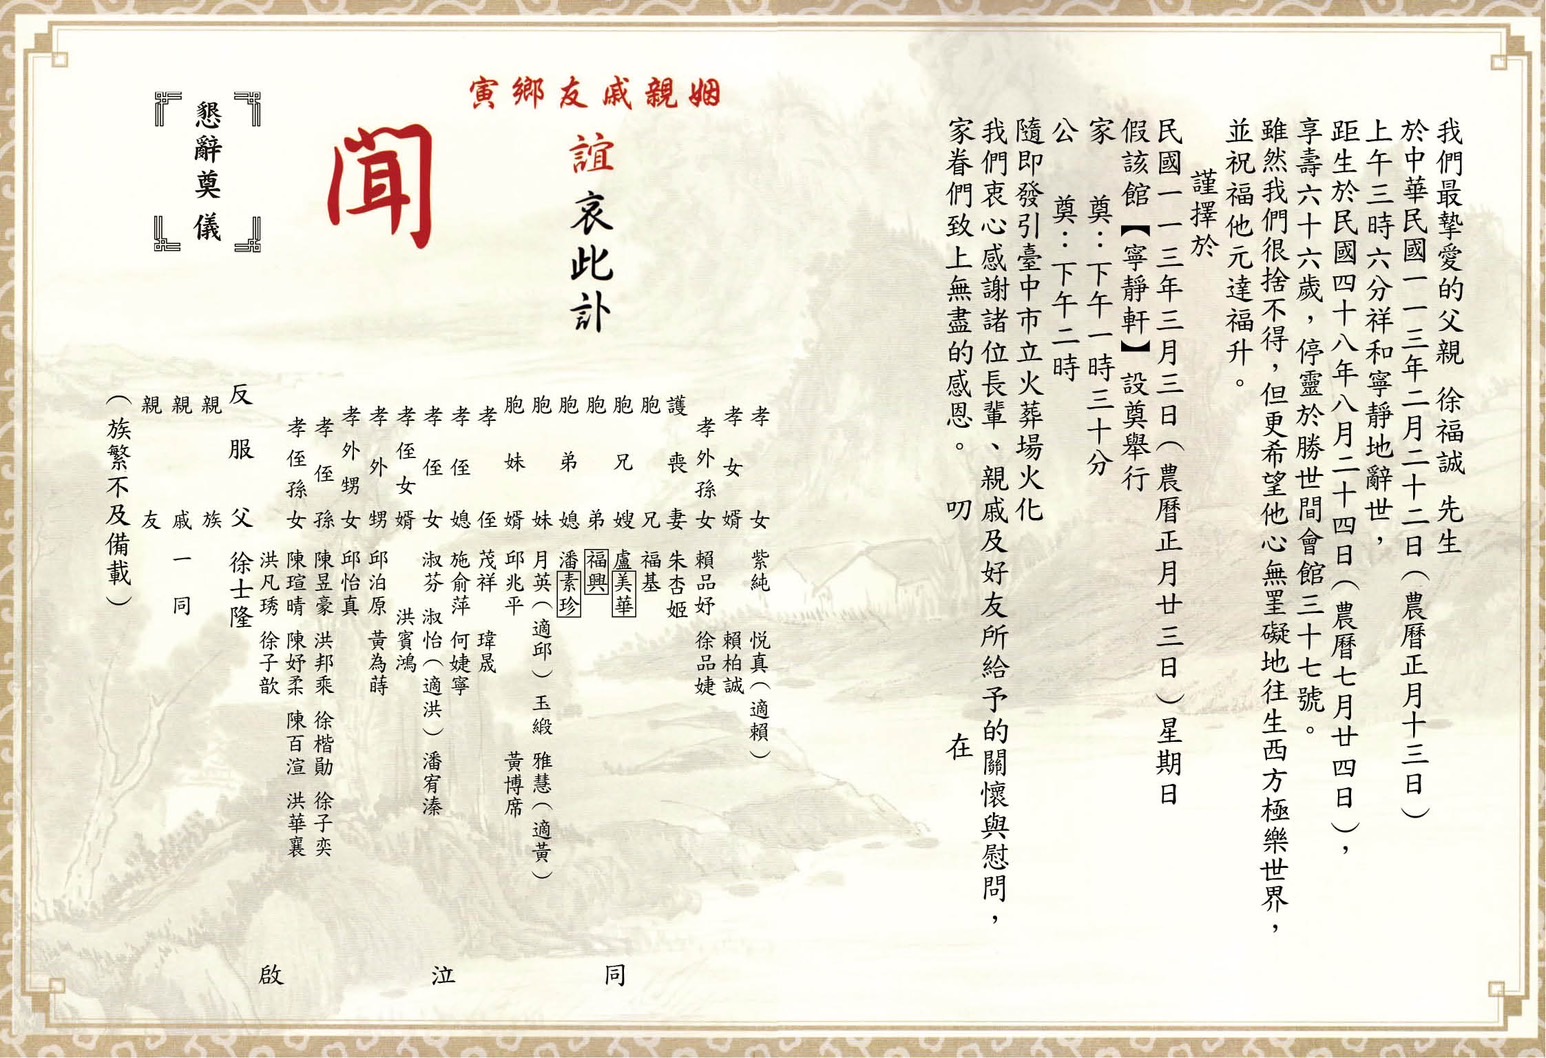 我們最摯愛的父親 徐福誠 先生
於中華民國一一三年二月二十二日（農曆正月十三日）
上午三時六分祥和寧靜地辭世，
距生於民國四十八年八月二十四日（農曆七月廿四日），
享壽六十六歲，停靈於勝世間會館三十七號。
雖然我們很捨不得，但更希望他心無罣礙地往生西方極樂世界，
並祝福他元達福升。
謹擇於
民國一一三年三月三日（農曆正月廿三日）星期日
假該館【寧靜軒】設奠舉行
家 奠：下午一時三十分
公 奠：下午二時
隨即發引臺中市立火葬場火化
我們衷心感謝諸位長輩、親戚及好友所給予的關懷與慰問，
家眷們致上無盡的感恩。 叨 在
姻親戚友鄉寅
誼哀此訃
聞
懇辭奠儀
孝女 紫純 悅真（適賴）
孝女婿 賴柏誠
孝外孫女 賴品妤 徐品婕
護喪妻 朱杏姬
胞兄 福基
胞兄嫂 盧美華
胞弟 福興
胞弟媳 潘素珍
胞妹 月英（適邱） 玉緞 雅慧（適黃）
胞妹婿 邱兆平 黃博席
孝侄 茂祥 瑋晟
孝侄媳 施俞萍 何婕寧
孝侄女 淑芬 淑怡（適洪） 潘宥溱
孝侄女婿 洪賓鴻
孝外甥 邱泊原 黃為蒔
孝外甥女 邱怡真
孝侄孫 陳昱豪 洪邦乘 徐楷勛 徐子奕
孝侄孫女 陳瑄晴 陳妤柔 陳百渲 洪華襄
洪凡琇 徐子歆
反服父 徐士隆
親族
親戚 一同
親友
（族繁不及備載）
同泣啟